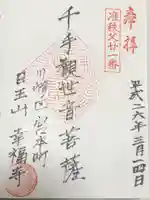 奉拝
准秩父廿一番
平成二六年三月一四日
千手観世音菩薩
川崎区宮本町
日王山